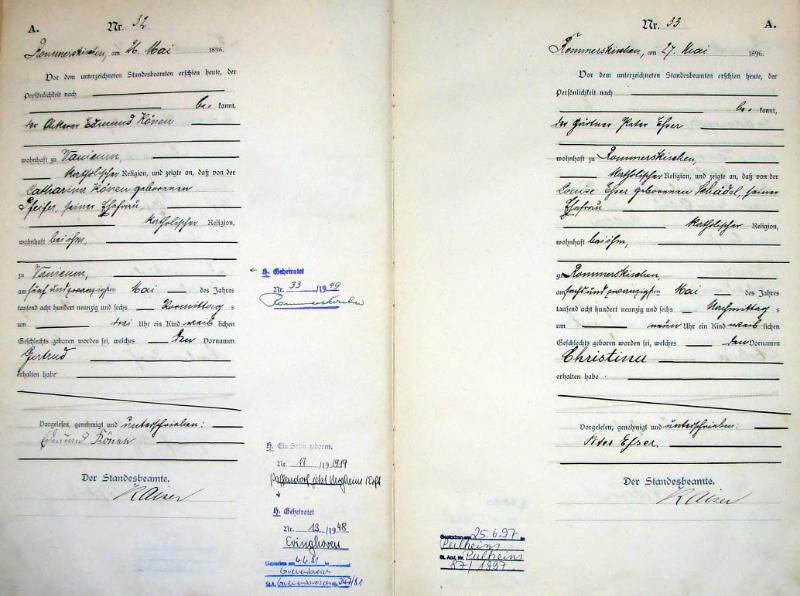 A.
Nr. 32
Rommerskirchen, am 26. Mai 1896.
Vor dem unterzeichneten Standesbeamten erschien heute, der
Persönlichkeit nach
be kannt,
der Ackerer Edmund Könen
wohnhaft zu Vanicum,
katholischer Religion, und zeigte an, daß von der
Catharina Könen geborenen
Pfeifer, seiner Ehefrau,
katholischer Religion,
wohnhaft bei ihm,
zu Vanicum,
am fünf und zwanzigsten Mai des Jahres
tausend acht hundert neunzig und sechs Vormittags
um drei Uhr ein Kind weib lichen
Geschlechts geboren worden sei, welches den Vornamen
Gertrud
erhalten habe
Vorgelesen, genehmigt und unterschrieben:
Edmund Könen
Der Standesbeamte.
Kaiser
H. Geheiratet
Nr. 33 /1949
Rommerskirchen
H. Ein Sohn geboren.
Nr. 17 /1919
Paffendorf jetzt Bergheim/Erft
H. Geheiratet
Nr. 13 /1948
Evinghoven
Gestorben am 4.6.81
Grevenbroich
St.A. Grevenbroich Nr. 347/81
Nr. 33
A.
Rommerskirchen, am 27. Mai 1896.
Vor dem unterzeichneten Standesbeamten erschien heute, der
Persönlichkeit nach
be kannt,
der Gärtner Peter Esser
wohnhaft zu Rommerskirchen,
katholischer Religion, und zeigte an, daß von der
Louise Esser geborenen Schädel, seiner
Ehefrau
katholischer Religion,
wohnhaft bei ihm,
zu Rommerskirchen,
am sechs und zwanzigsten Mai des Jahres
tausend acht hundert neunzig und sechs Nachmittags
um neun Uhr ein Kind weib lichen
Geschlechts geboren worden sei, welches den Vornamen
Christina
erhalten habe
Vorgelesen, genehmigt und unterschrieben:
Peter Esser.
Der Standesbeamte.
Kaiser
Gestorben am 25.6.97
Pulheim
St. Amt, Nr. Pulheim
87 / 1997